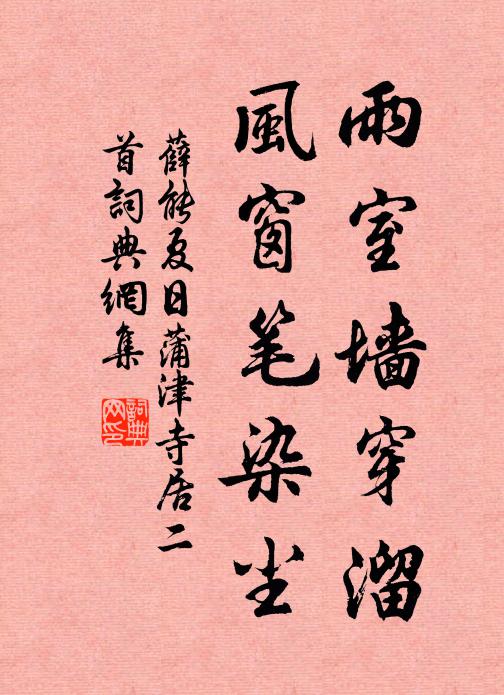 雨室墙穿溜
風窗笔染尘
薛能夏日蒲津寺居二
首詞典網集
詞典
网印